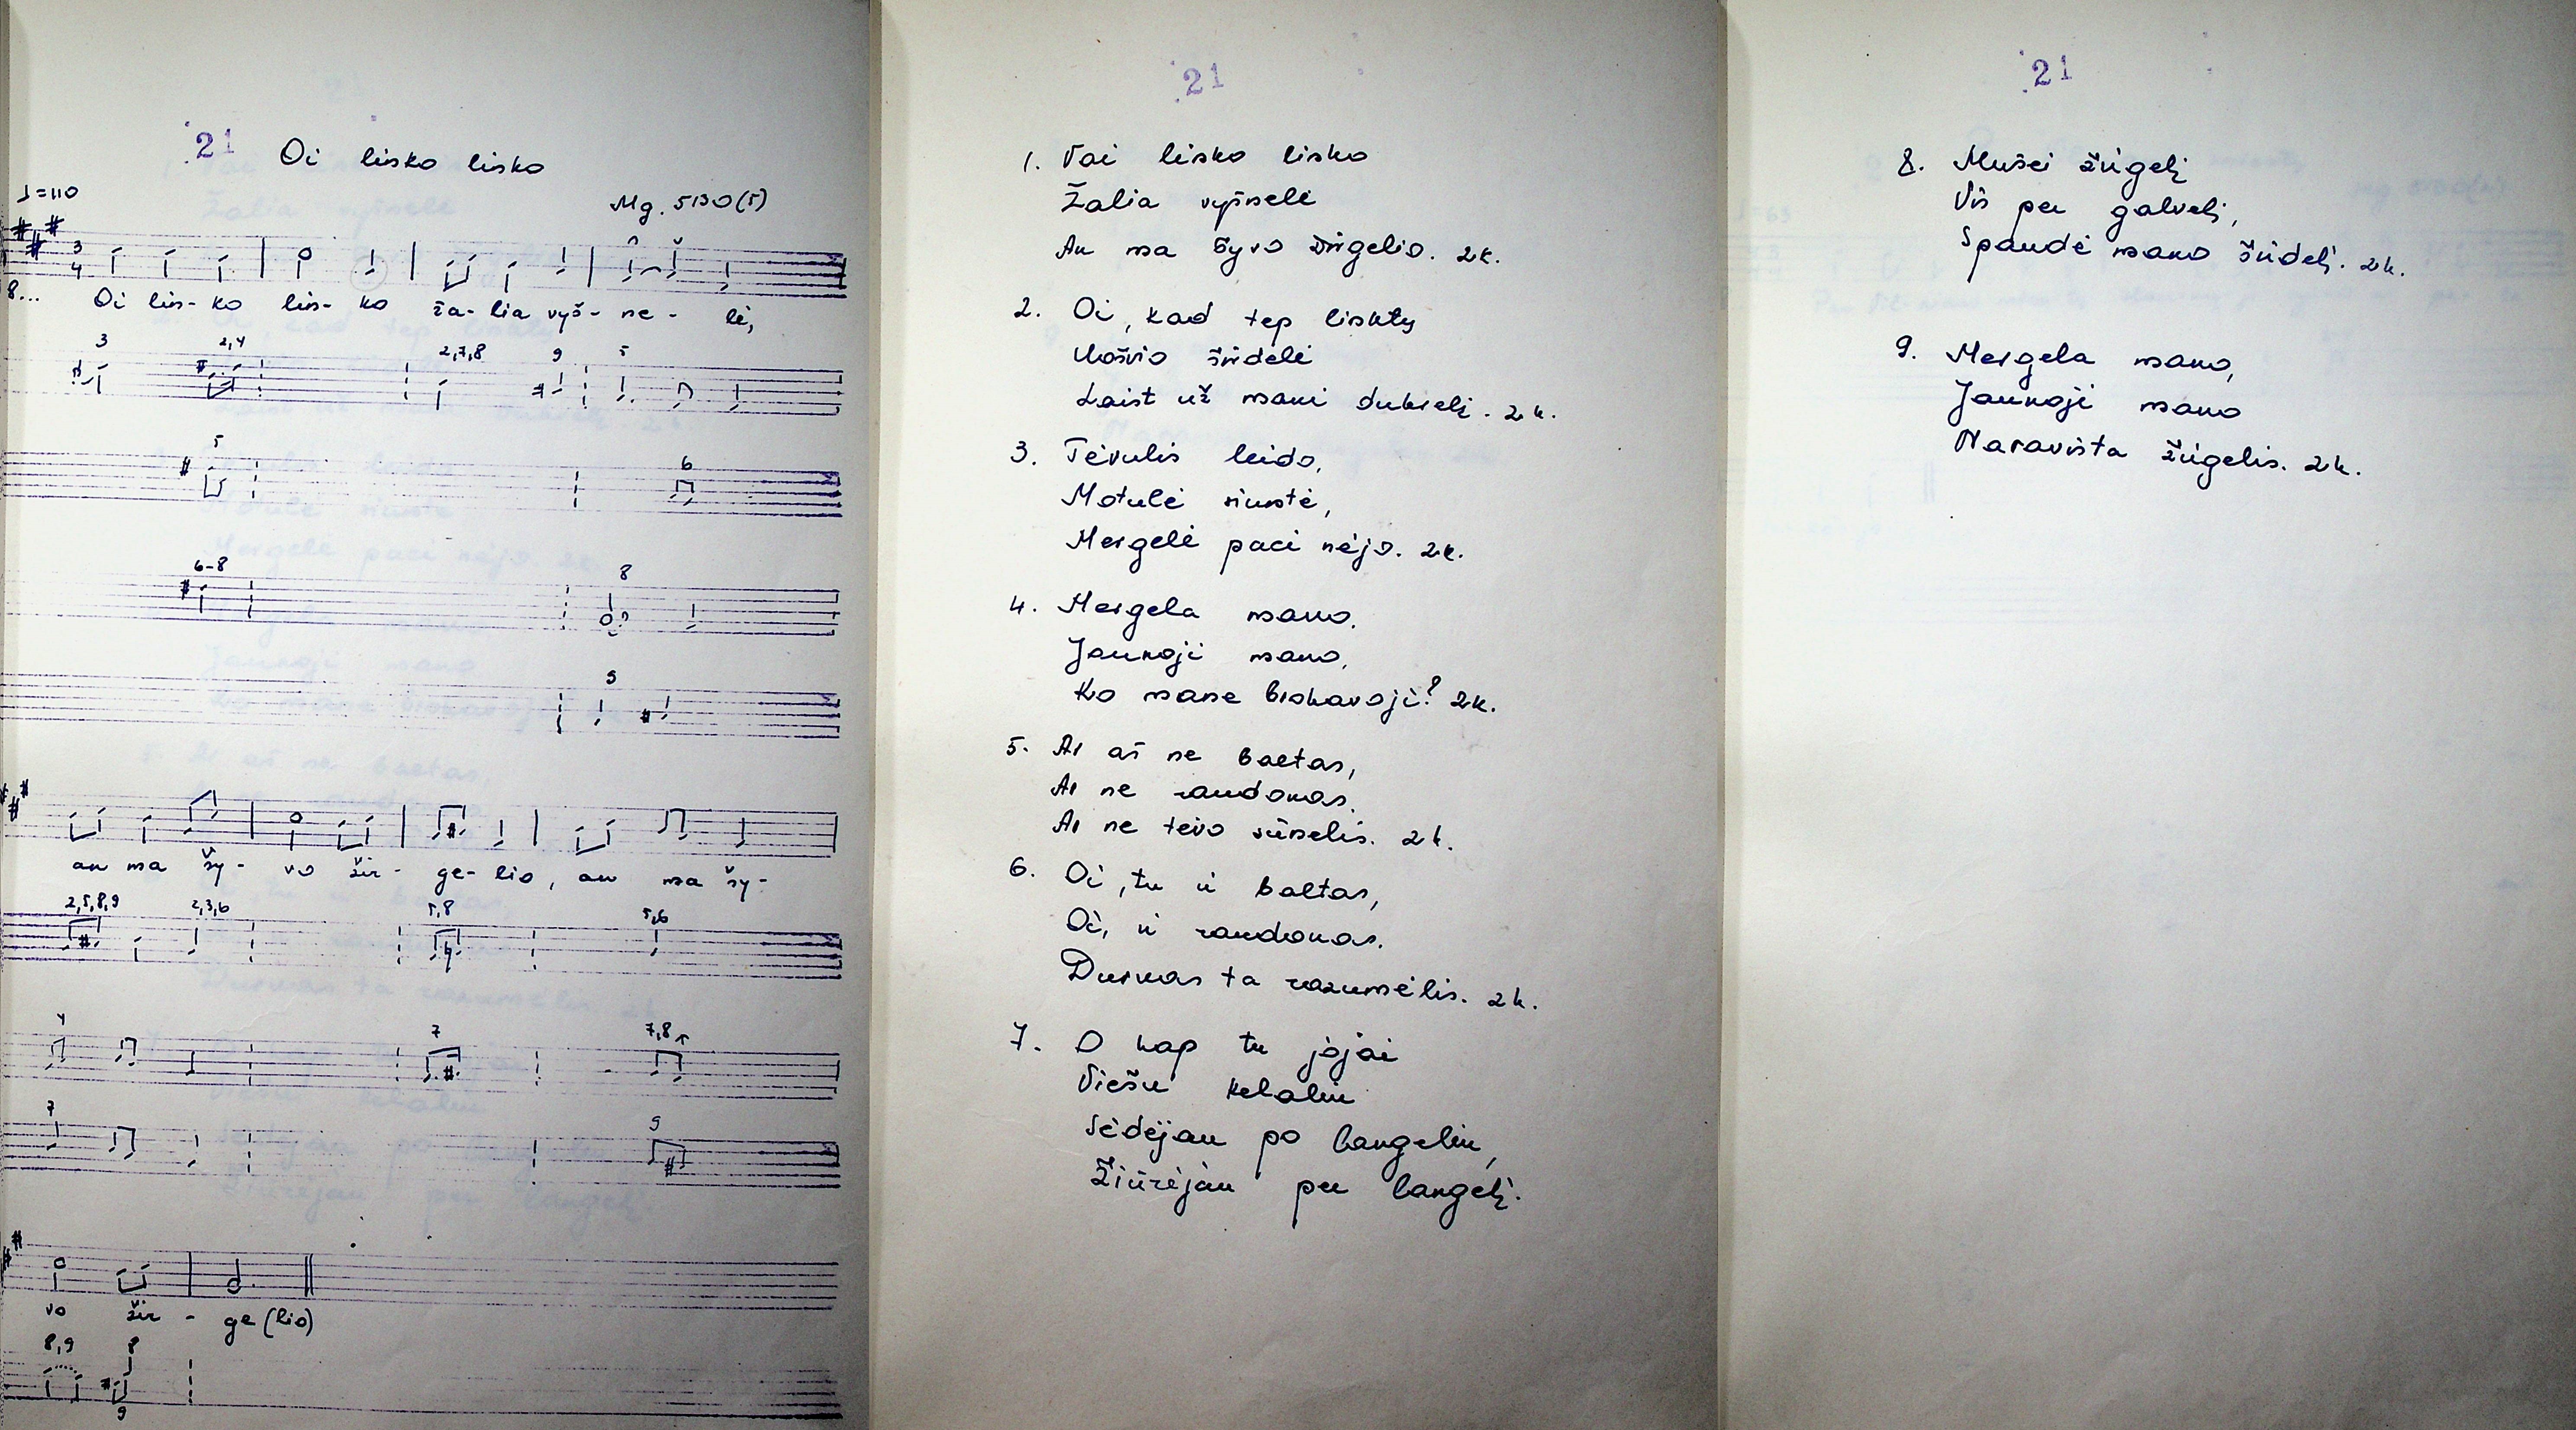 21 Oi lisko lisko
♩=110
Mg. 5130(5)
3
4
8... Oi lis- ko lis- ko ža- lia vyš- ne- lė,
3 2,4 2,7,8 9 5
5 6
6-8 8
9
an ma šy- vo žir- ge- lio, an ma šy-
2,5,8,9 2,3,6 5,8 5,6
4 7 7,8
7 9
vo žir - ge (lio)
8,9 8
9
21
1. Vai lisko lisko
Žalia vyšnelė
An ma šyvo žirgelio. 2k.
2. Oi, kad tep liskty
širdelė
Laist už mani dukrelį. 2k.
3. Tėvulis leido,
Motulė siuntė,
Mergelė paci nėjo. 2k.
4. Mergela mano,
Jaunoji mano,
Ko mane brokavoji? 2k.
5. Ar aš ne baltas,
Ar ne raudonas,
Ar ne tėvo sūnelis. 2k.
6. Oi, tu ir baltas,
Oi, ir raudonas.
Durnas ta razumėlis. 2k.
7. O kap tu jojai
Viešu keleliu
Sėdėjau po langeliu,
Žiūrėjau per langelį.
21
8. Mušei žirgelį
Vis per galvelį,
Spaudė mano širdelį. 2k.
9. Mergela mano,
Jaunoji mano
Naravista žirgelis. 2k.